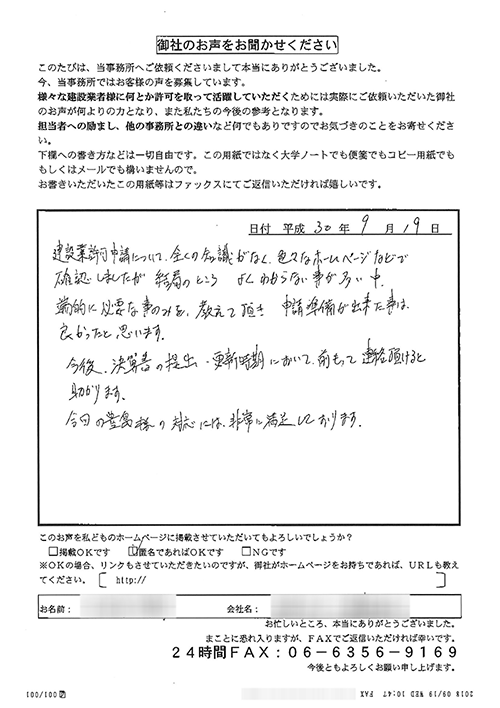 御社のお声をお聞かせください
このたびは、当事務所へご依頼くださいまして本当にありがとうございました。
今、当事務所ではお客様の声を募集しています。
様々な建設業者様に何とか許可を取って活躍していただくためには実際にご依頼いただいた御社
のお声が何よりの力となり、また私たちの今後の参考となります。
担当者への励まし、他の事務所との違いなど何でもありですのでお気づきのことをお寄せくださ
い。
下欄への書き方などは一切自由です。この用紙ではなく大学ノートでも便箋でもコピー用紙でも
もしくはメールでも構いませんので。
お書きいただいたこの用紙等はファックスにてご返信いただければ嬉しいです。
日付 平成 30 年 9 月 19 日
建設業許可申請について、全くの知識がなく、色々なホームページなどで
確認しましたが 結局のところ よくわからない事が多い中、
端的に必要な事のみを、教えて頂き 申請準備が出来た事は、
良かったと思います。
今後、決算書の提出・更新時期において、前もって連絡頂けると
助かります。
今回の豊島様の対応には、非常に満足しております。
このお声を私どものホームページに掲載させていただいてもよろしいでしょうか?
□掲載OKです ☑匿名であればOKです □NGです
※OKの場合、リンクもさせていただきたいのですが、御社がホームページをお持ちであれば、URLも教え
てください。 [ http:// ]
お名前: 会社名:
お忙しいところ、本当にありがとうございました。
まことに恐れ入りますが、FAXでご返信いただければ幸いです。
24時間FAX:06-6356-9169
今後ともよろしくお願い申し上げます。
2018/09/19 WED 10:47 FAX 001/001